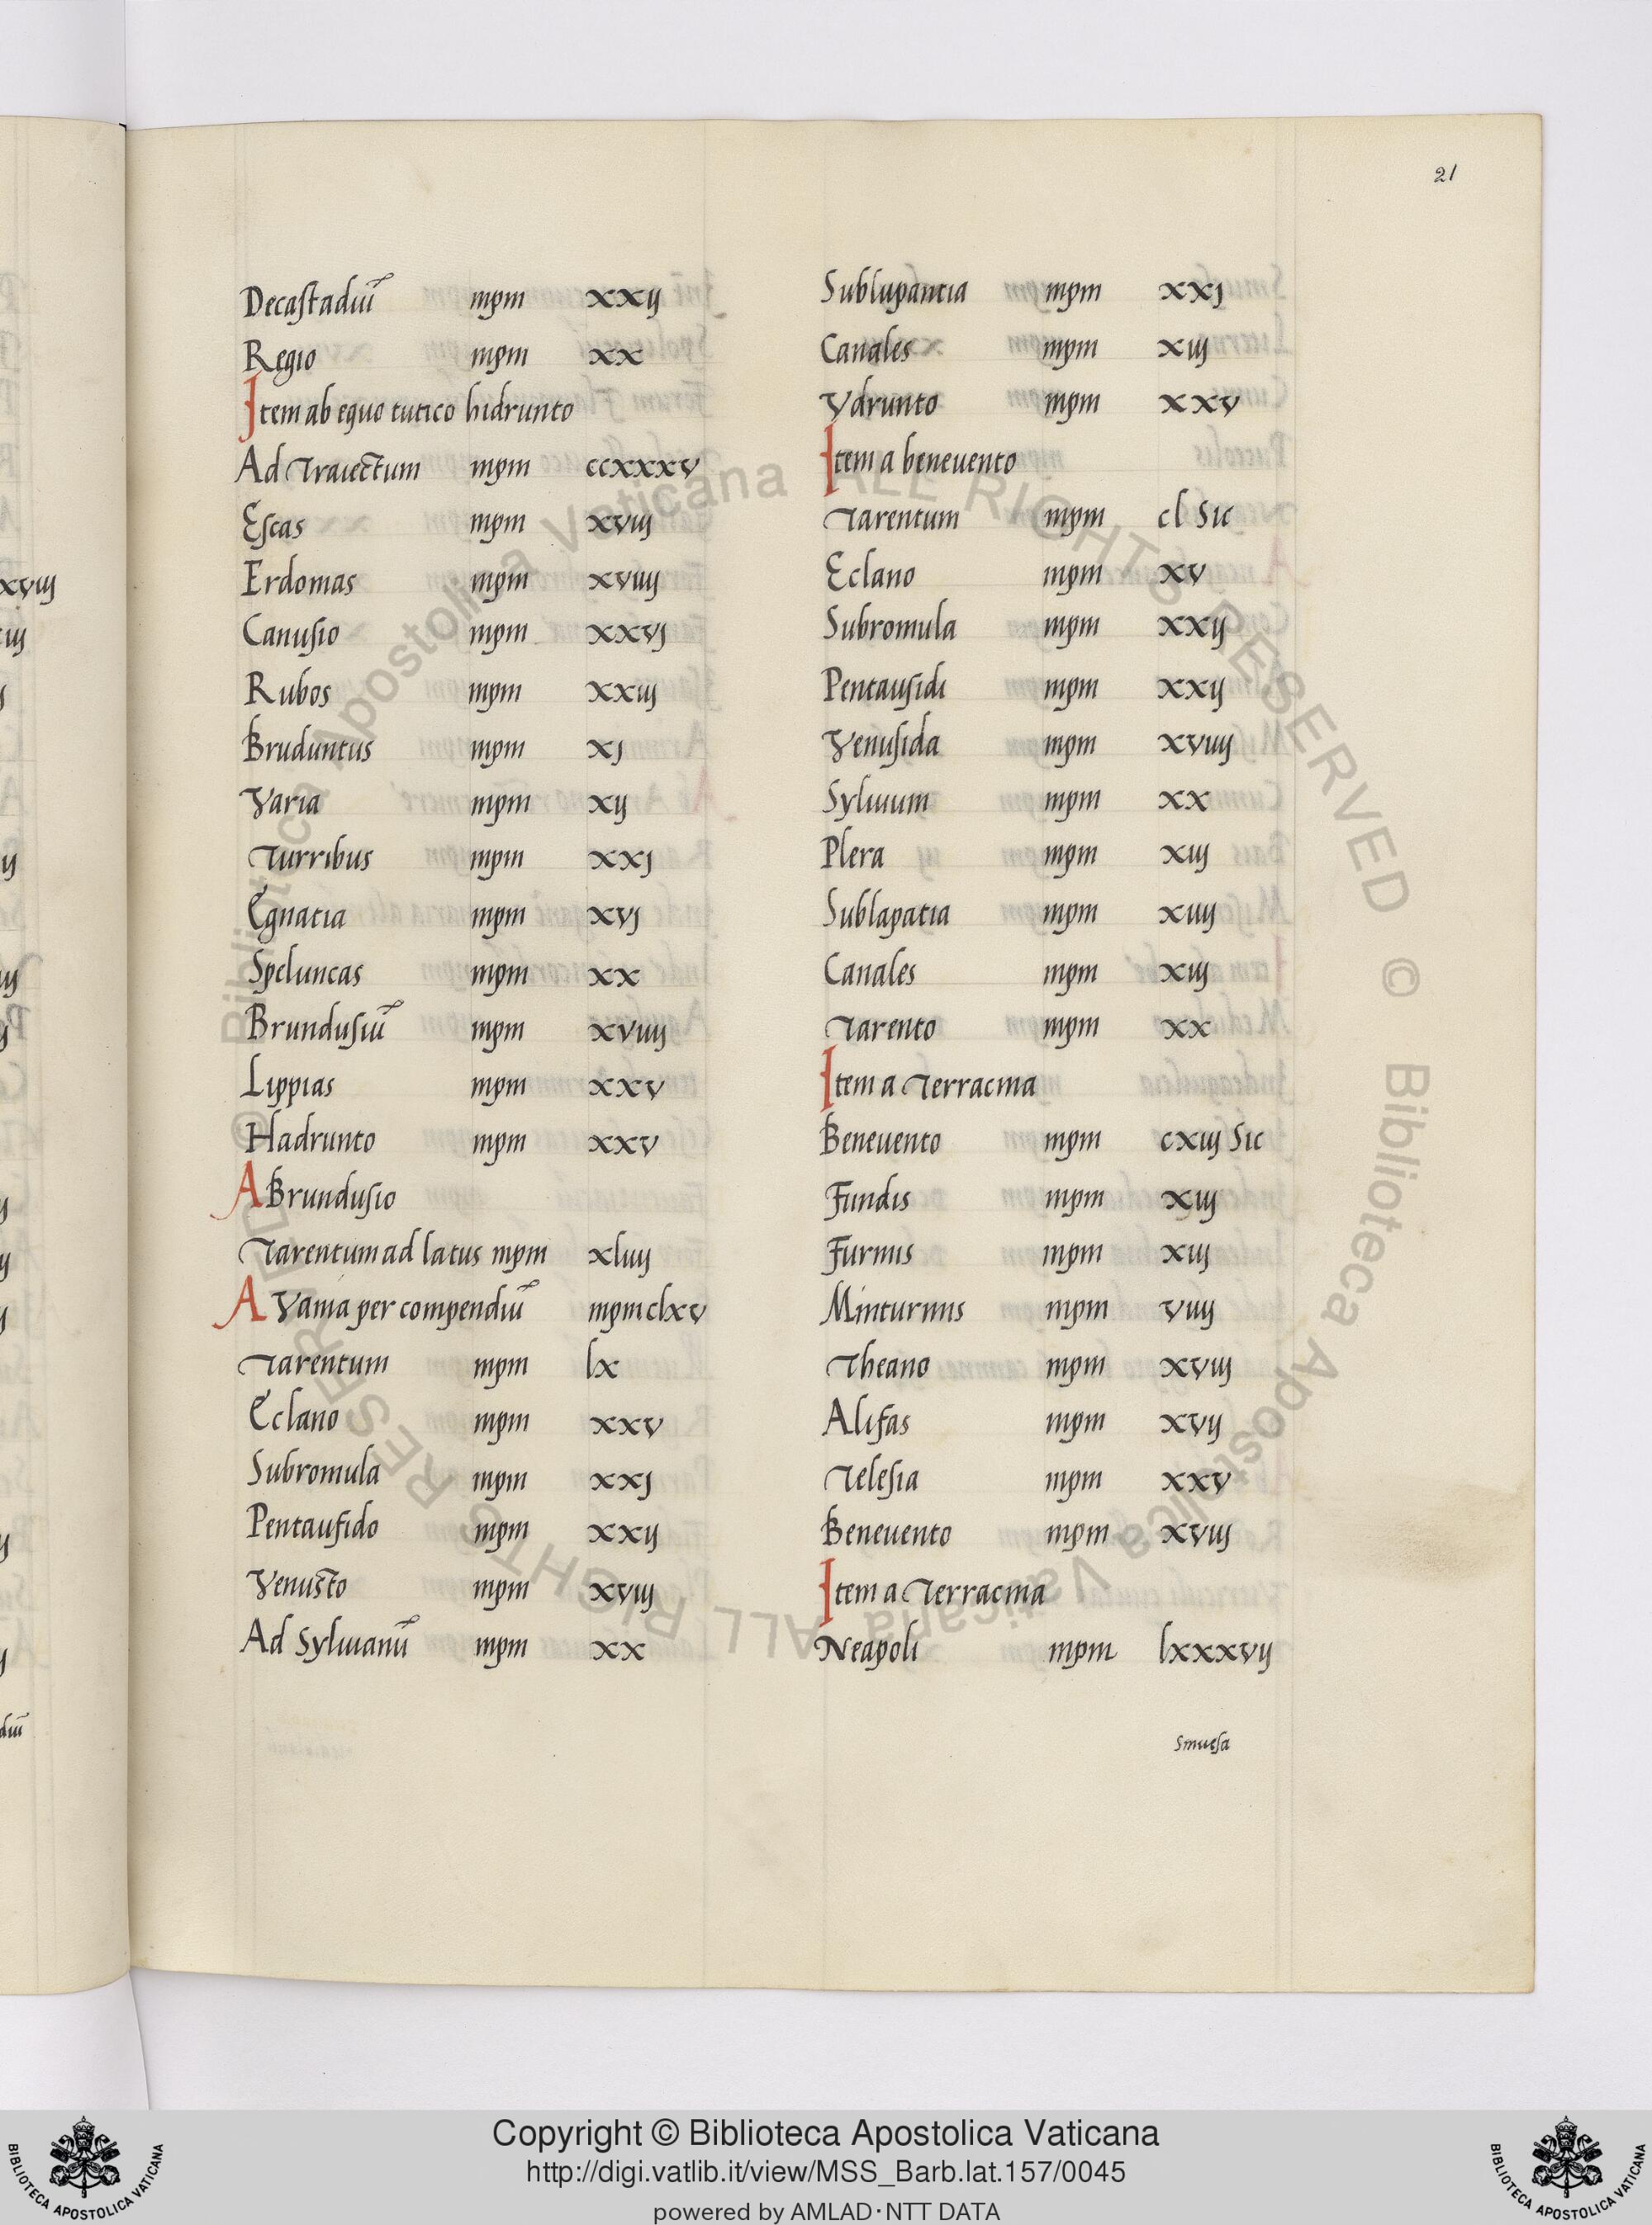 21
Decastadiū mpm xxij
Regio mpm xx
Item ab equo tutico hidrunto
Ad Traiectum mpm ccxxxv
Escas mpm xviij
Erdomas mpm xviiij
Canusio mpm xxvj
Rubos mpm xxiij
Bruduntus mpm xj
Varia mpm xij
Turribus mpm xxj
Egnatia mpm xvj
Speluncas mpm xx
Brundusiū mpm xviiij
Lippias mpm xxv
Hadrunto mpm xxv
A Brundusio
Tarentum ad latus mpm xliiij
A Vania per compendiū mpm clxv
Tarentum mpm lx
Eclano mpm xxv
Subromula mpm xxj
Pentausido mpm xxij
Venusto mpm xviij
Ad Syluianū mpm xx
Sublupantia mpm xxj
Canales mpm xiij
Ydrunto mpm xxv
Item a beneuento
Tarentum mpm cl Sic
Eclano mpm xv
Subromula mpm xxij
Pentausidi mpm xxij
Venusida mpm xviiij
Syluium mpm xx
Plera mpm xiij
Sublapatia mpm xiiij
Canales mpm xiij
Tarento mpm xx
Item a Terracina
Beneuento mpm cxiij Sic
Fundis mpm xiij
Furmis mpm xiij
Minturnis mpm viiij
Theano mpm xviij
Alifas mpm xvij
Telesia mpm xxv
Beneuento mpm xviij
Item a Terracina
Neapoli mpm lxxxvij
Sinuesa
© Biblioteca Apostolica Vaticana ALL RIGHTS RESERVED © Biblioteca Apostolica Vaticana ALL RIGHTS RESERVED
Copyright © Biblioteca Apostolica Vaticana
http://digi.vatlib.it/view/MSS_Barb.lat.157/0045
powered by AMLAD·NTT DATA
BIBLIOTECA APOSTOLICA VATICANA
BIBLIOTECA APOSTOLICA VATICANA